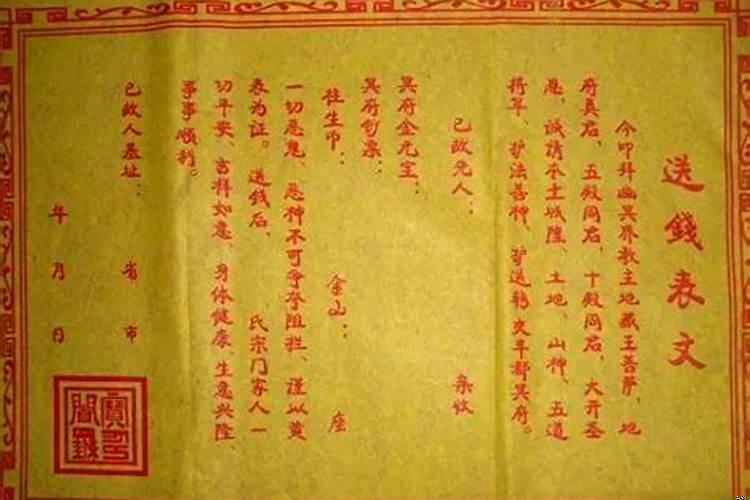 送錢表文
今叩拜幽冥界教主地藏王菩萨、地
府真君、五殿阎君、十殿阎君、大开圣
恩、诚请本土城隍、土地、山神、五道
将军、护法善神、护送转交丰都冥府。
已故先人： 亲收
冥府金元宝：
冥府钞票：
往生币： 金山： 座
一切恶鬼、恶神不可争夺阻拦、谨以黄
表为证。送钱后、 氏宗门家人一
切平安、吉祥如意、身体健康、生意兴隆、
事事顺利。
已故人墓址： 省 市
年 月 日